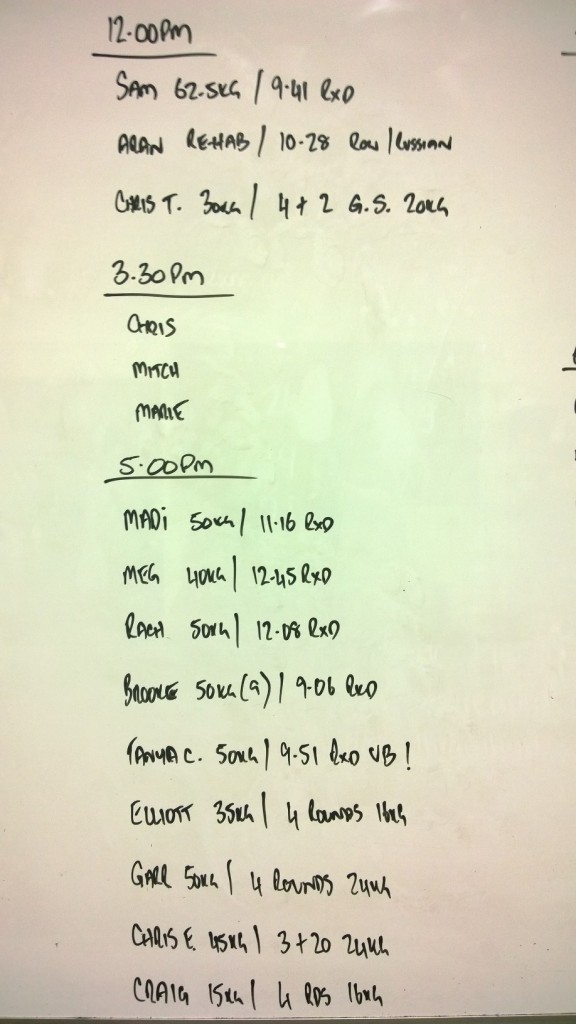 12.00PM
SAM 62.5KG / 9.41 RXD
ARAN REHAB / 10-28 ROW / RUSSIAN
CHRIS T. 30KG / 4 + 2 G.S. 20KG
3.30PM
CHRIS
MITCH
MARIE
5.00PM
MADi 50KG / 11.16 RXD
MEG 40KG / 12.45 RXD
RACH 50KG / 12.08 RXD
BROOKE 50KG (9) / 9.06 RXD
TANYA C. 50KG / 9.51 RXD UB!
ELLIOTT 35KG / 4 ROUNDS 16KG
50KG / 4 ROUNDS 24KG
CHRIS E. 45KG / 3+20 24KG
CRAIG 15KG / 4 RDS 16KG